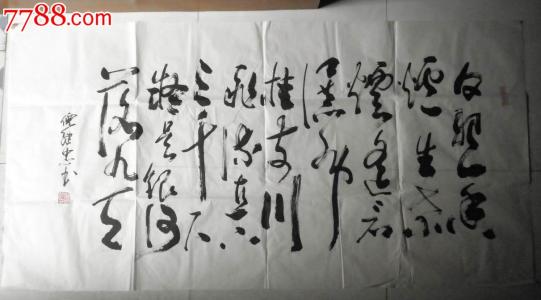 7788.com
日照香
爐生紫
煙遥看
瀑布
挂前川
飛流直下
三千尺
疑是銀河
落九天
书